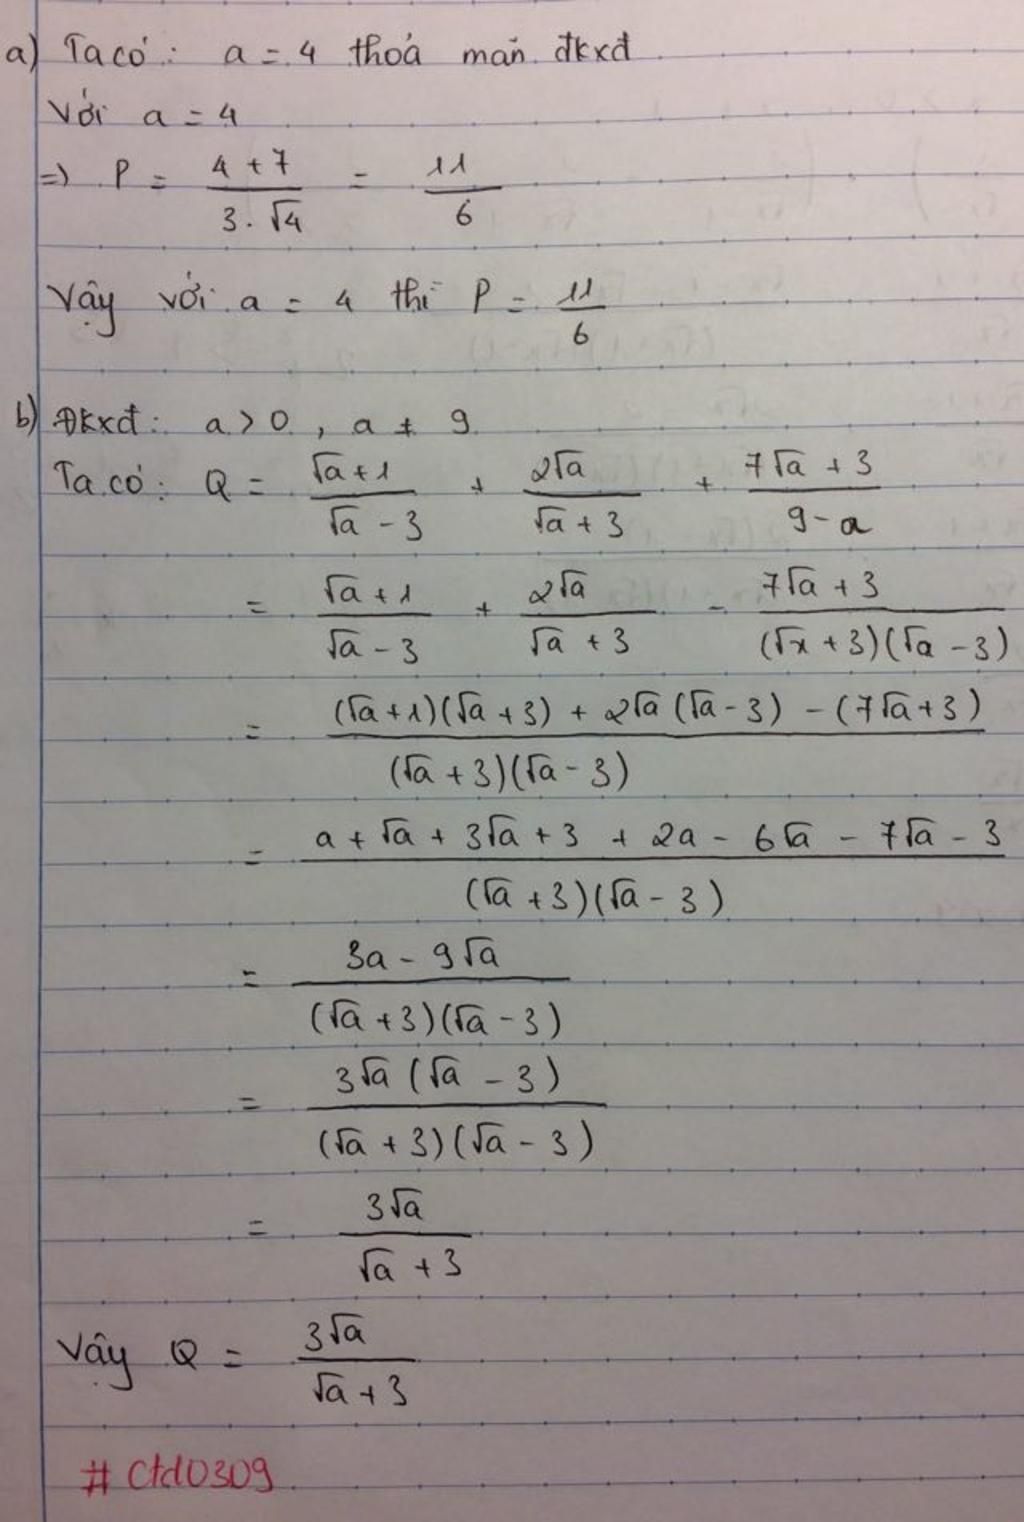 a) Ta có: a = 4 thoả mãn đkxđ
Với a = 4
=> P = (4 + 7)/(3.√4) = 11/6
Vậy với a = 4 thì P = 11/6
b) Đkxđ: a > 0, a ≠ 9
Ta có: Q = (√a + 1)/(√a - 3) + 2√a/(√a + 3) + (7√a + 3)/(9 - a)
= (√a + 1)/(√a - 3) + 2√a/(√a + 3) - (7√a + 3)/((√x + 3)(√a - 3))
= ((√a + 1)(√a + 3) + 2√a(√a - 3) - (7√a + 3))/((√a + 3)(√a - 3))
= (a + √a + 3√a + 3 + 2a - 6√a - 7√a - 3)/((√a + 3)(√a - 3))
= (3a - 9√a)/((√a + 3)(√a - 3))
= 3√a(√a - 3)/((√a + 3)(√a - 3))
= 3√a/(√a + 3)
Vậy Q = 3√a/(√a + 3)
# Ctd0309